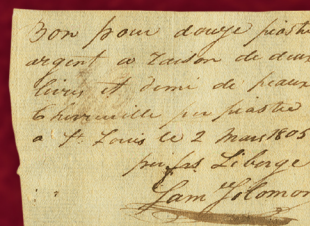 Bon pour douze piastr
argent a raison de deux
livres et demi de peaux
Chevreuille par piastre
a St. Louis le 2 Mars 1805
pour frs Liberge
Sam Solomon